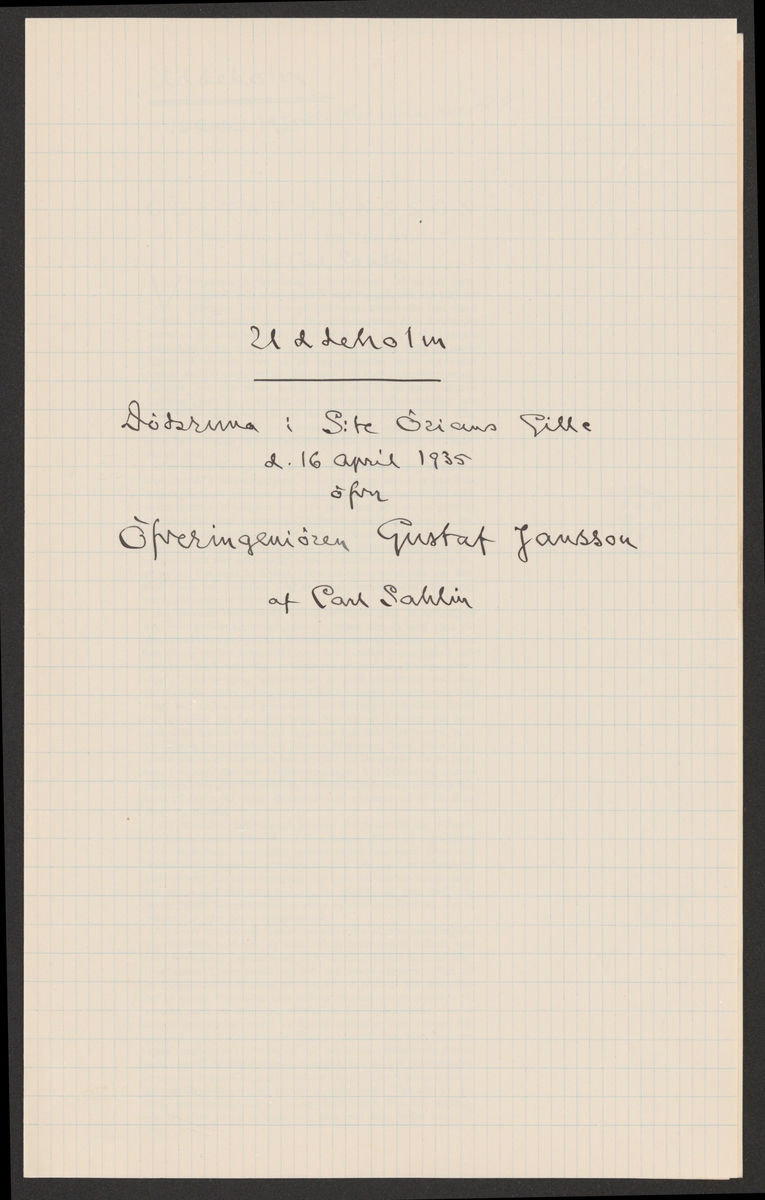 Uddeholm
Dödsruna i S:te Örians Gille
d. 16 april 1935
öfver
Öfveringeniören Gustaf Jansson
af Carl Sahlin